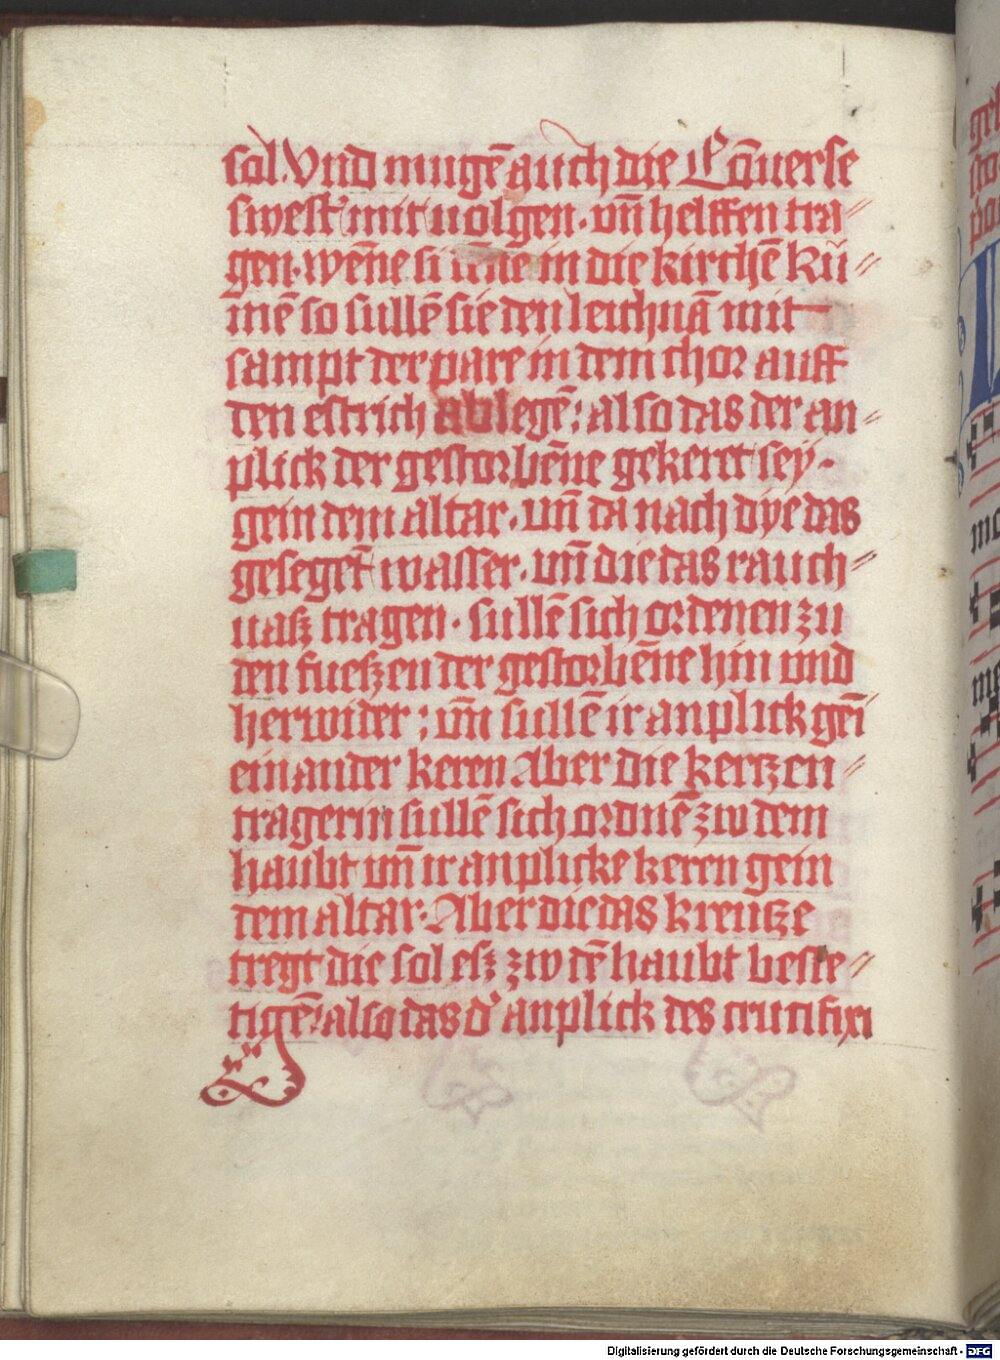 sol. Vnd mugē auch die Cōuerse
swest' mit uolgen · vn̄ helffen tra⸗
gen · wēne si in die kirchē kū⸗
mē so sullē sie den leichnā mit
sampt der pare in dem chor auff
den estrich ablegē : also das der an⸗
plick der gestorbēne gekeret sey ·
gein dem altar · vn̄ da nach dye das
gesegēt wasser · vn̄ die das rauch⸗
uasz tragen · sullē sich ordenen zu
den fueszen der gestorbēne hin vnd
herwider ; vn̄ sullē ir anplick gei̅
einander keren Aber die kertzen⸗
tragerin sullē sich ordnē zw dem
haubt vn̄ ir anplicke keren gein
dem altar · Aber die das kreutze
tregt die sol esz zw dē haubt beste⸗
tigē : also das d' anplick des crucifixi
Digitalisierung gefördert durch die Deutsche Forschungsgemeinschaft - DFG